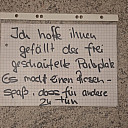 Ich hoffe ihnen
gefällt der frei
geschaufelte Parkplatz
Es macht einen Riesen-
spaß, dass für andere
zu tun